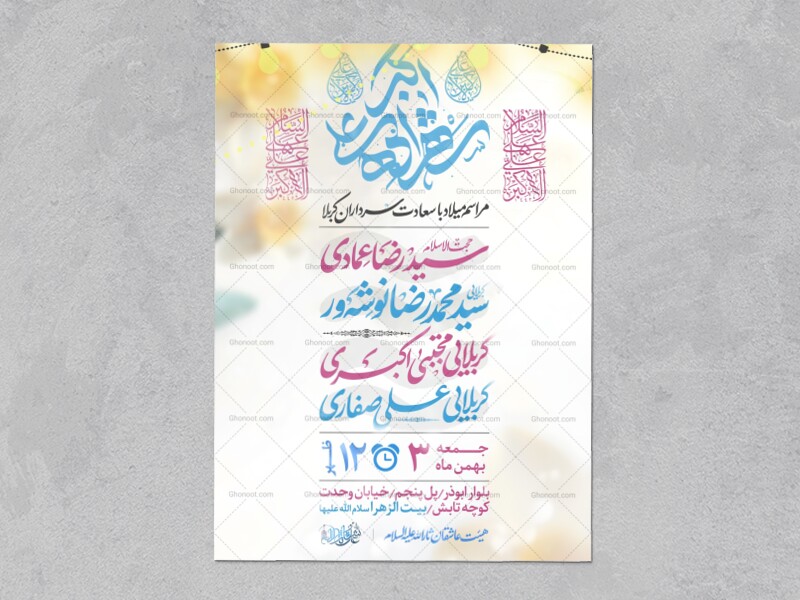 السلام علی علی الاکبر
السلام علی علی الاکبر
مراسم میلاد با سعادت سرداران کربلا
حجت الاسلام
سید رضا عمادی
کربلایی
سید محمدرضا نوشه‌ور
کربلایی مجتبی اکبری
کربلایی علی صفاری
جمعه ۳ بهمن ماه
۱۲ ظهر
بلوار ابوذر/پل پنجم/خیابان وحدت
کوچه تابش/بیت الزهرا سلام الله علیها
هیئت عاشقان ثارالله علیه السلام
Ghonoot.com